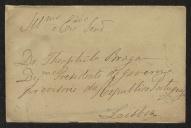 Illmo Exmo
Snr
Dr. Theophilo Braga
Dgmo Presidente do Governo
provisorio da Republica Portugueza
Lisboa